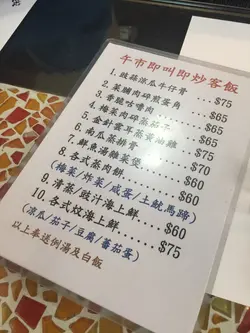 午市即叫即炒客飯
1. 豉蒜涼瓜牛仔骨 ...... $75
2. 菜脯肉碎煎蛋角 ...... $75
3. 香脆咕嚕肉 ...... $65
4. 梅菜肉碎蒸茄子 ... $65
5. 金針雲耳蒸黃油雞 ... $65
6. 南瓜蒸排骨 ...... $65
7. 鮮魚湯梅菜煲 ...... $75
8. 各式蒸肉餅 ...... $70
(梅菜/炸菜/咸蛋/土魷馬蹄)
9. 清蒸/豉汁海上鮮 ...... $60
10. 各式炆海上鮮 ...... $60
(涼瓜/茄子/豆腐/蕃茄蛋) $75
以上奉送例湯及白飯